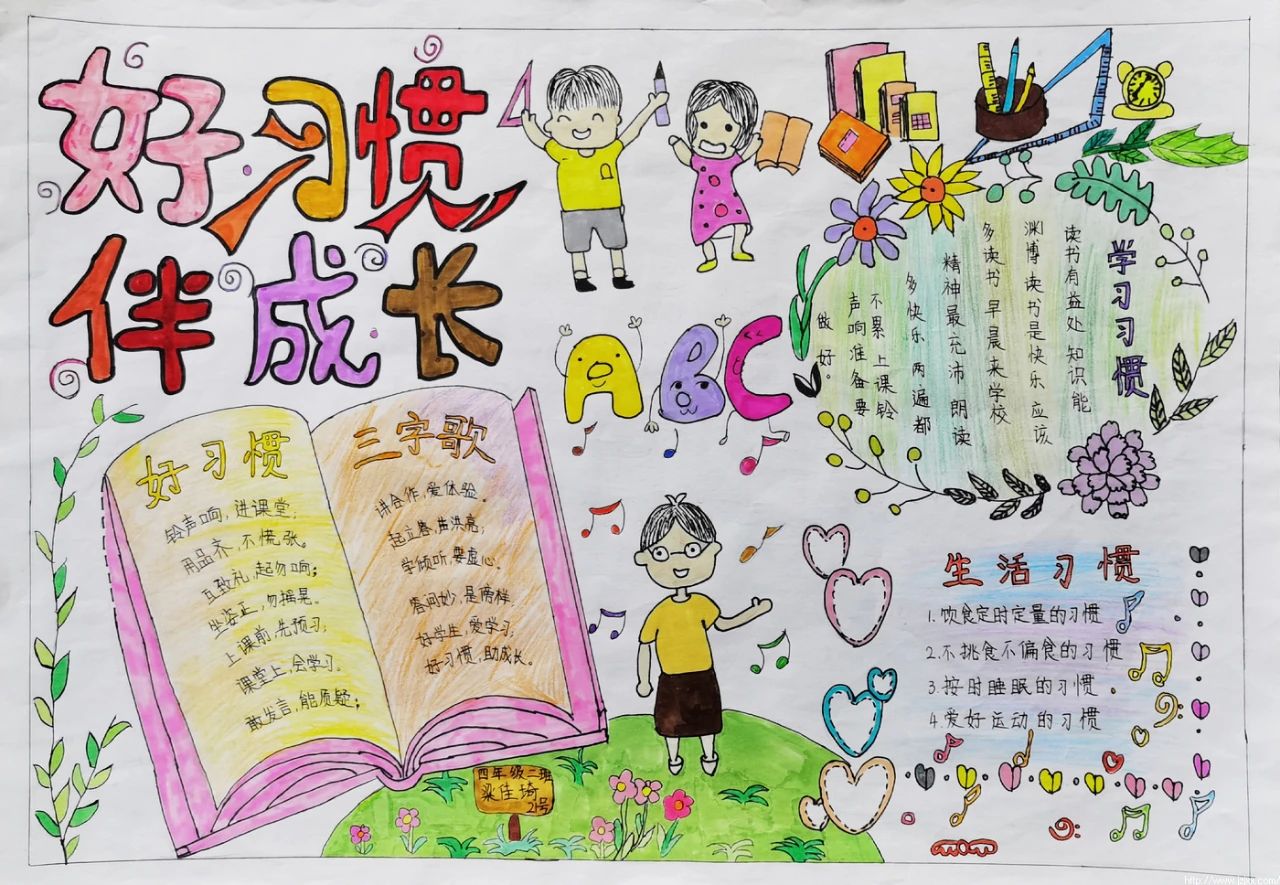 好习惯
伴成长
ABC
好习惯
铃声响,进课堂,
用品齐,不慌张。
互致礼,起勿响;
坐姿正,勿摇晃。
上课前,先预习,
课堂上,会学习。
敢发言,能质疑;
三字歌
讲合作,爱体验。
起立春,声洪亮;
学倾听,要虚心。
看问妙,是榜样。
好学生,爱学习;
好习惯,助成长。
学习习惯
读书有益处 知识能
渊博 读书是快乐 应该
多读书 早晨来学校
精神最充沛 朗读
多快乐 两遍都
不累 上课铃
声响准备要
做好。
生活习惯
1.饮食定时定量的习惯
2.不挑食不偏食的习惯
3.按时睡眠的习惯
4.爱好运动的习惯
四年级二班
梁佳埼
21号